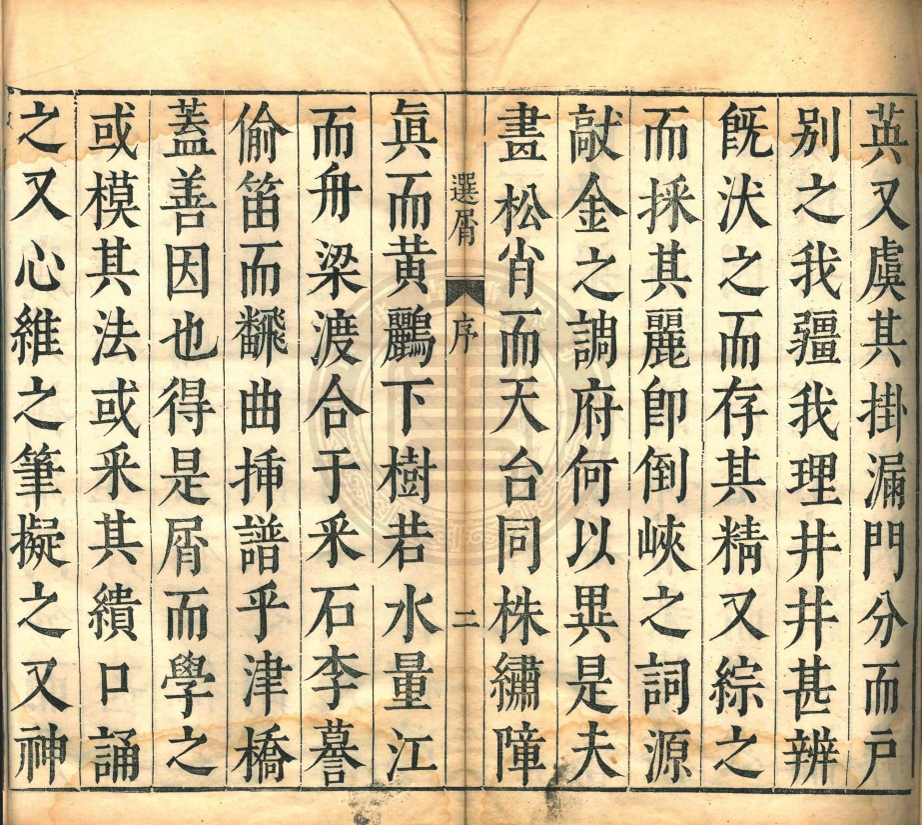 英又虞其掛漏門分而戶
别之我疆我理井井甚辨
旣汰之而存其精又綜之
而採其麗卽倒峽之詞源
敲金之調府何以異是夫
畫松肖而天台同株繡障
選屑 序 二
眞而黄鸝下樹若水量江
而舟梁渡合于采石李謩
偷笛而飜曲揷譜乎津橋
蓋善因也得是屑而學之
或模其法或采其繢口誦
之又心維之筆擬之又神